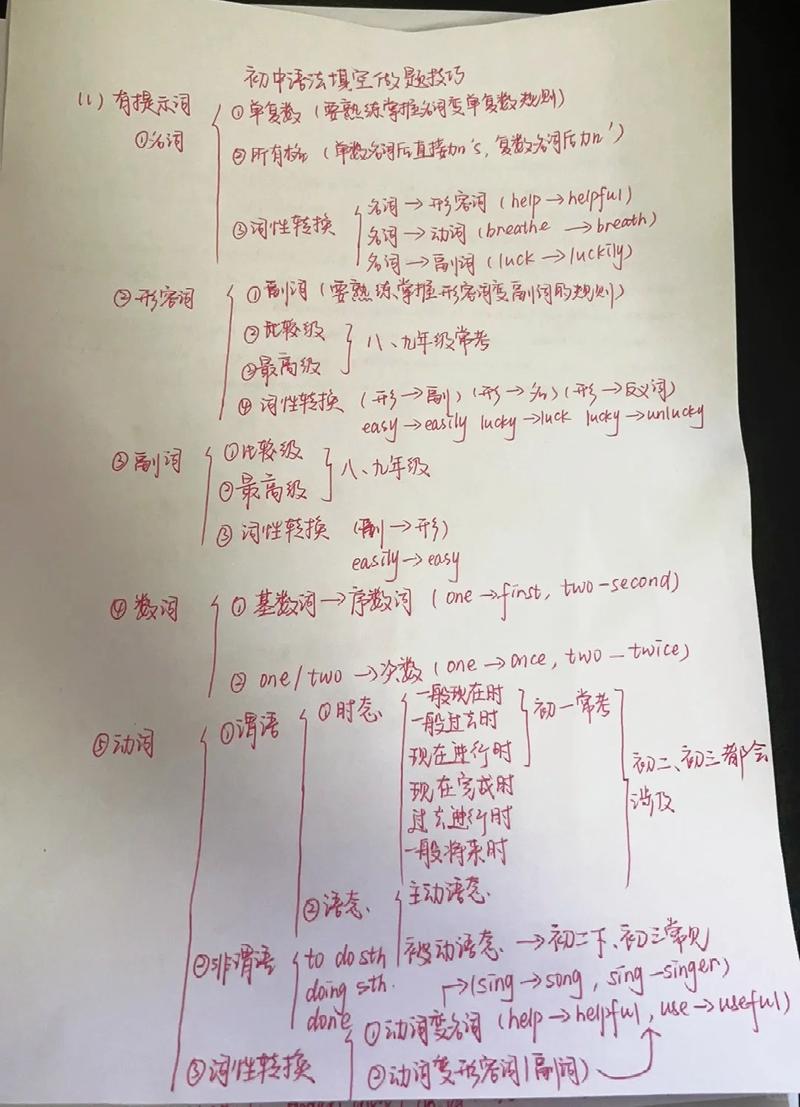 初中语法填空做题技巧
(1) 有提示词
①名词
①单复数 (要熟练掌握名词变单复数规则)
②所有格 (单数名词后直接加's, 复数名词后加')
③词性转换
名词→形容词 (help→helpful)
名词→动词 (breathe →breath)
名词→副词 (luck→luckily)
②形容词
①副词 (要熟练掌握形容词变副词的规则)
②比较级
③最高级
八、九年级常考
④词性转换 (形→副) (形→名) (形→反义词)
easy→easily lucky→luck lucky→unlucky
③副词
①比较级
②最高级
八、九年级
③词性转换 (副→形)
easily→easy
④数词
①基数词→序数词 (one→first, two-second)
②one/two→次数 (one→once, two-twice)
⑤动词
①谓语
①时态
一般现在时
一般过去时
现在进行时
初一常考
现在完成时
过去进行时
一般将来时
初二、初三都会
涉及
②语态
主动语态
被动语态 →初二下、初三常见
②非谓语
to do sth
doing sth.
done
→(sing→song, sing-singer)
③词性转换
①动词变名词 (help→helpful, use→useful)
②动词变形容词(副词)